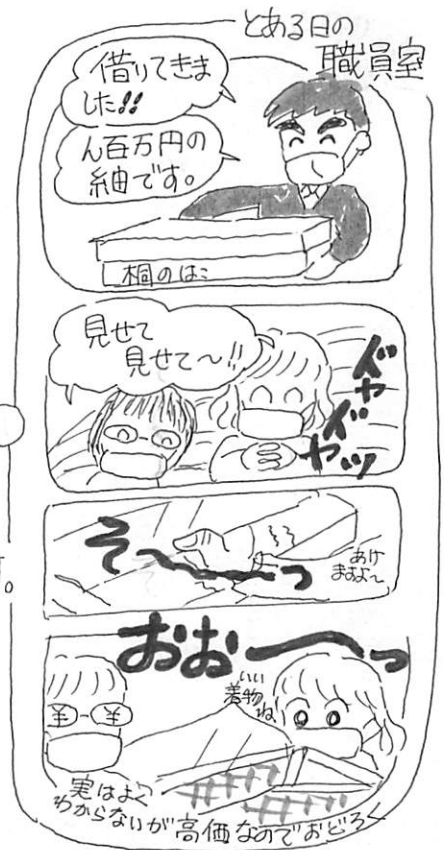 とある日の
職員室
借りてきま
した!!
ん百万円の
紬です。
桐のはこ
見せて
見せて〜!!
ドヤ
ドヤッ
そ〜〜っ
あけ
ますよ〜
おお〜っ
いい
着物
ね
¥-¥
実はよく
わからないが高価なのでおどろく
。